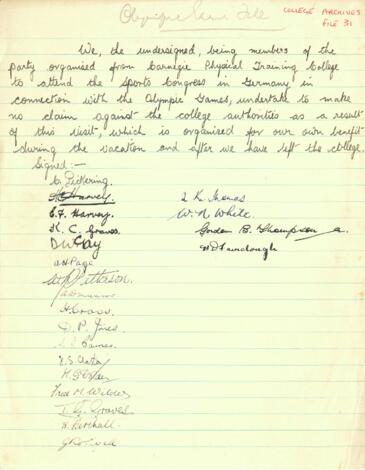 COLLEGE ARCHIVES
FILE 31
Olympic File
We, the undersigned, being members of the
party organised from Carnegie Physical Training College
to attend the sports Congress in Germany, in
connection with the Olympic Games, undertake to make
no claim against the college authorities as a result
of this visit, which is organised for our own benefit
during the vacation and after we have left the college.
Signed:—
Pickering.
Harvey.
E. F. Harvey.
K. C. Graves.
D W Gay
A H Page
W. N. White.
Gordon B. Thompson
Fairclough
H. Cross.
D. P. Jones.
Fred M. Wilder
Graves
H. Birchall.